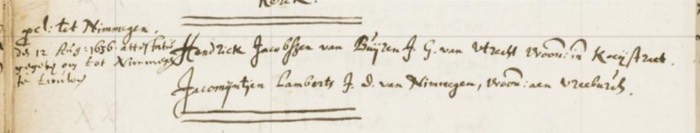 Kerck.
get: tot Nimmegen.
den 12 Aug: 1636 attestatie
gegeven om tot Nimmegen
te trouwen
Hendrick Jacobssen van Buijren J. G. van Utrecht woon: in Koeijstraet.
Jacomijntjen Lamberts J. D. van Nimmegen, woon: aen vreeburch.